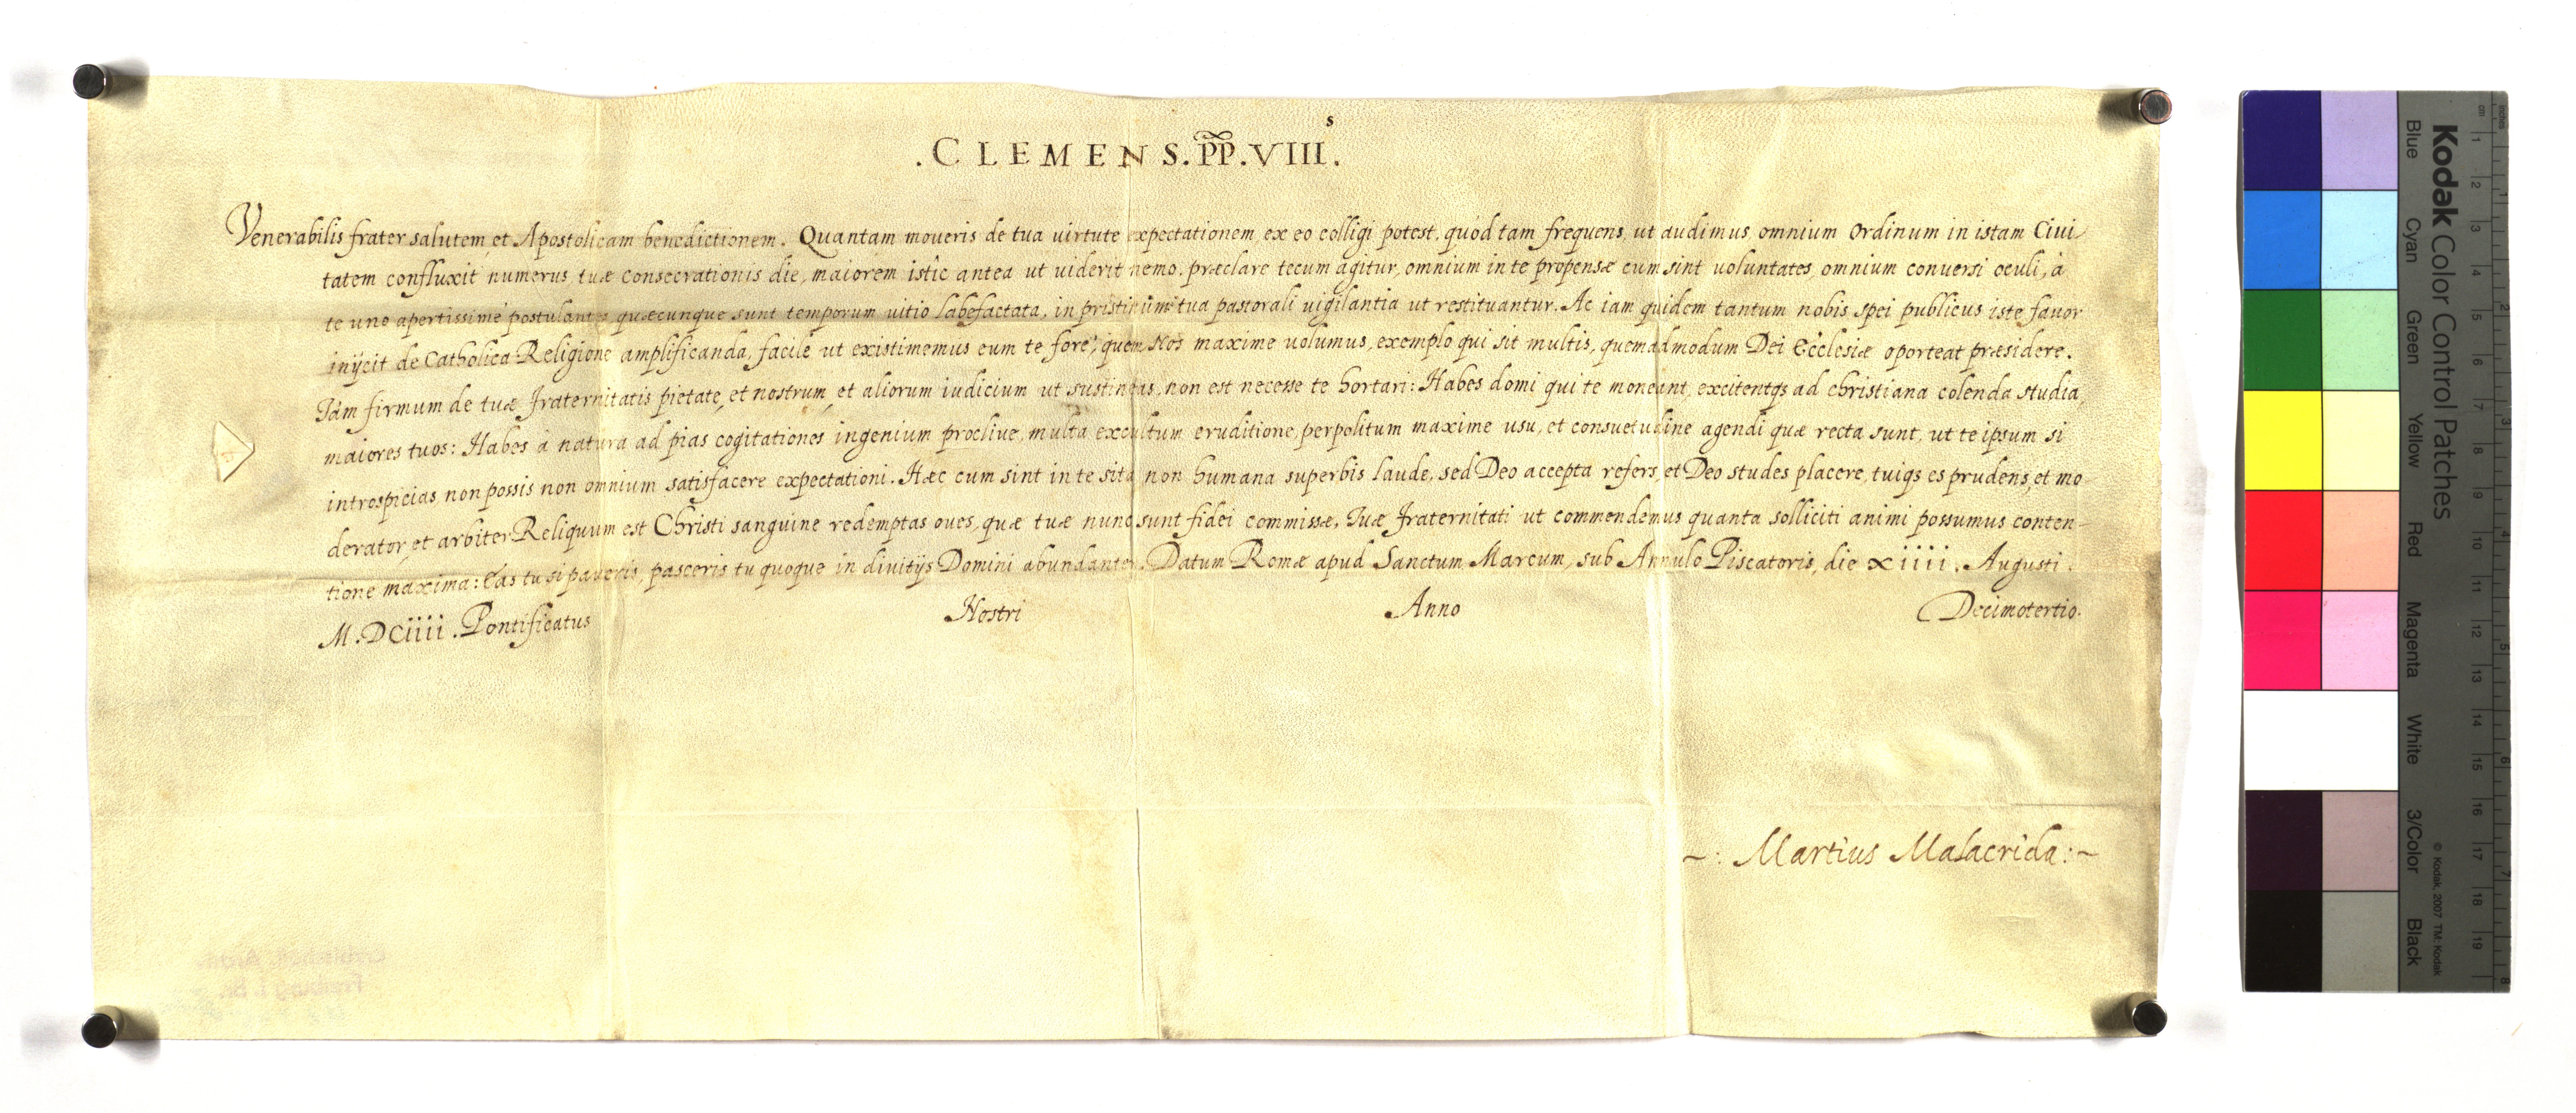 .CLEMENS.PP.VIII.s
Venerabilis frater salutem, et Apostolicam benedictionem. Quantam moveris de tua virtute expectationem, ex eo colligi potest, quòd tam frequens, ut audimus, omnium Ordinum in istam Civi-
tatem confluxit numerus, tuæ consecrationis die, maiorem istic antea ut viderit nemo. præclare tecum agitur, omnium in te propensæ cum sint voluntates, omnium conversi oculi, à
te uno apertissimè postulantes quæcunque sunt temporum vitio labefactata, in pristinum tua pastorali vigilantia ut restituantur. Ac iam quidem tantum nobis spei publicus iste favor
inijcit de Catholica Religione amplificanda, facilè ut existimemus eum te fore, quem Nos maxime volumus, exemplo qui sit multis, quemadmodum Dei Ecclesiæ oporteat præsidere.
Tàm firmum de tuæ Fraternitatis pietate, et nostrum, et aliorum iudicium ut sustineas, non est necesse te hortari: Habes domi qui te moneant, excitentqs ad christiana colenda studia,
maiores tuos: Habes à natura ad pias cogitationes ingenium proclive, multa excultum eruditione, perpolitum maxime usu, et consuetudine agendi quæ recta sunt, ut te ipsum si
introspicias non possis non omnium satisfacere expectationi. Hæc cum sint in te sita non humana superbis laude, sed Deo accepta refers, et Deo studes placere, tuiqs es prudens, et mo
derator, et arbiter. Reliquum est Christi sanguine redemptas oves, quæ tuæ nunc sunt fidei commissæ, Tuæ Fraternitati ut commendemus quanta solliciti animi possumus conten-
tione maxima: Eas tu si paveris, pasceris tu quoque in divitijs Domini abundanter. Datum Romæ apud Sanctum Marcum, sub Annulo Piscatoris, die xiiii. Augusti.
M.DCiiii. Pontificatus Nostri Anno Decimotertio.
~: Martius Malacrida:~
Kodak Color Control Patches
© Kodak, 2007 TM: Kodak
Blue Cyan Green Yellow Red Magenta White 3/Color Black
cm 1 2 3 4 5 6 7 8 9 10 11 12 13 14 15 16 17 18 19
inches 1 2 3 4 5 6 7 8